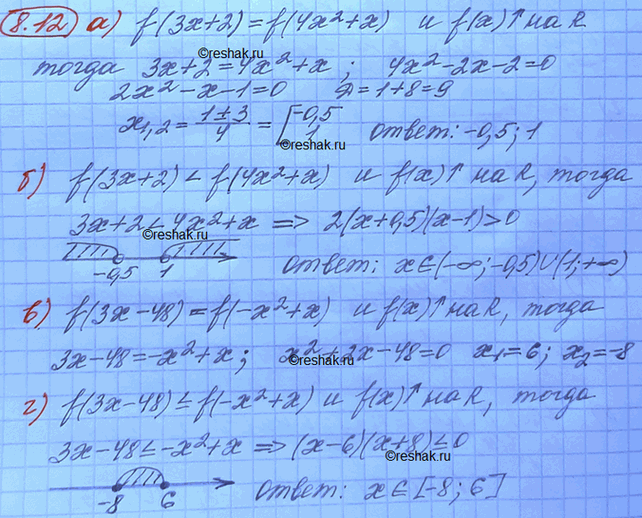 8.12 а) f(3x+2) = f(4x²+x) и f(x)↑ на R
©reshak.ru
тогда 3x+2=4x²+x ; 4x²-2x-2=0
2x²-x-1=0 D=1+8=9
x₁,₂ = (1±3)/4 = [-0,5 1 ответ: -0,5; 1
©reshak.ru
б) f(3x+2) < f(4x²+x) и f(x)↑ на R, тогда
3x+2<4x²+x ⇒ 2(x+0,5)(x-1)>0
©reshak.ru
-0,5 1 ответ: x∈(-∞;-0,5)∪(1;+∞)
в) f(3x-48)=f(-x²+x) и f(x)↑ на R, тогда
3x-48=-x²+x ; x²+2x-48=0 x₁=6; x₂=-8
©reshak.ru
г) f(3x-48)≤f(-x²+x) и f(x)↑ на R, тогда
3x-48≤-x²+x ⇒ (x-6)(x+8)≤0
©reshak.ru
-8 6 ответ: x∈[-8; 6]